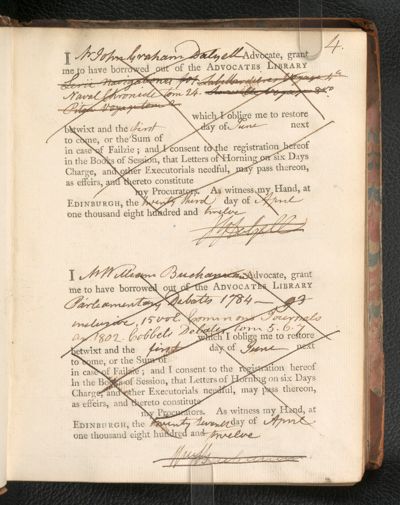 4.
I Mr John Graham Dalyell Advocate, grant
me to have borrowed out of the ADVOCATES LIBRARY
Naval Chronicle tom 24.
which I oblige me to restore
betwixt and the first day of June next
to come, or the Sum of
in case of Failzie; and I consent to the registration hereof
in the Books of Session, that Letters of Horning on six Days
Charge, and other Executorials needful, may pass thereon,
as effeirs, and thereto constitute
my Procurators. As witness my Hand, at
EDINBURGH, the twenty third day of April
one thousand eight hundred and twelve
I Mr William Buchanan Advocate, grant
me to have borrowed out of the ADVOCATES LIBRARY
Parliamentary Debates 1784 —
inclusive, 15 vol. Commons Journals
1802. Cobbets Debates tom 5. 6. 7
which I oblige me to restore
betwixt and the first day of June next
to come, or the Sum of
in case of Failzie; and I consent to the registration hereof
in the Books of Session, that Letters of Horning on six Days
Charge, and other Executorials needful, may pass thereon,
as effeirs, and thereto constitute
my Procurators. As witness my Hand, at
EDINBURGH, the twenty seventh day of April
one thousand eight hundred and twelve